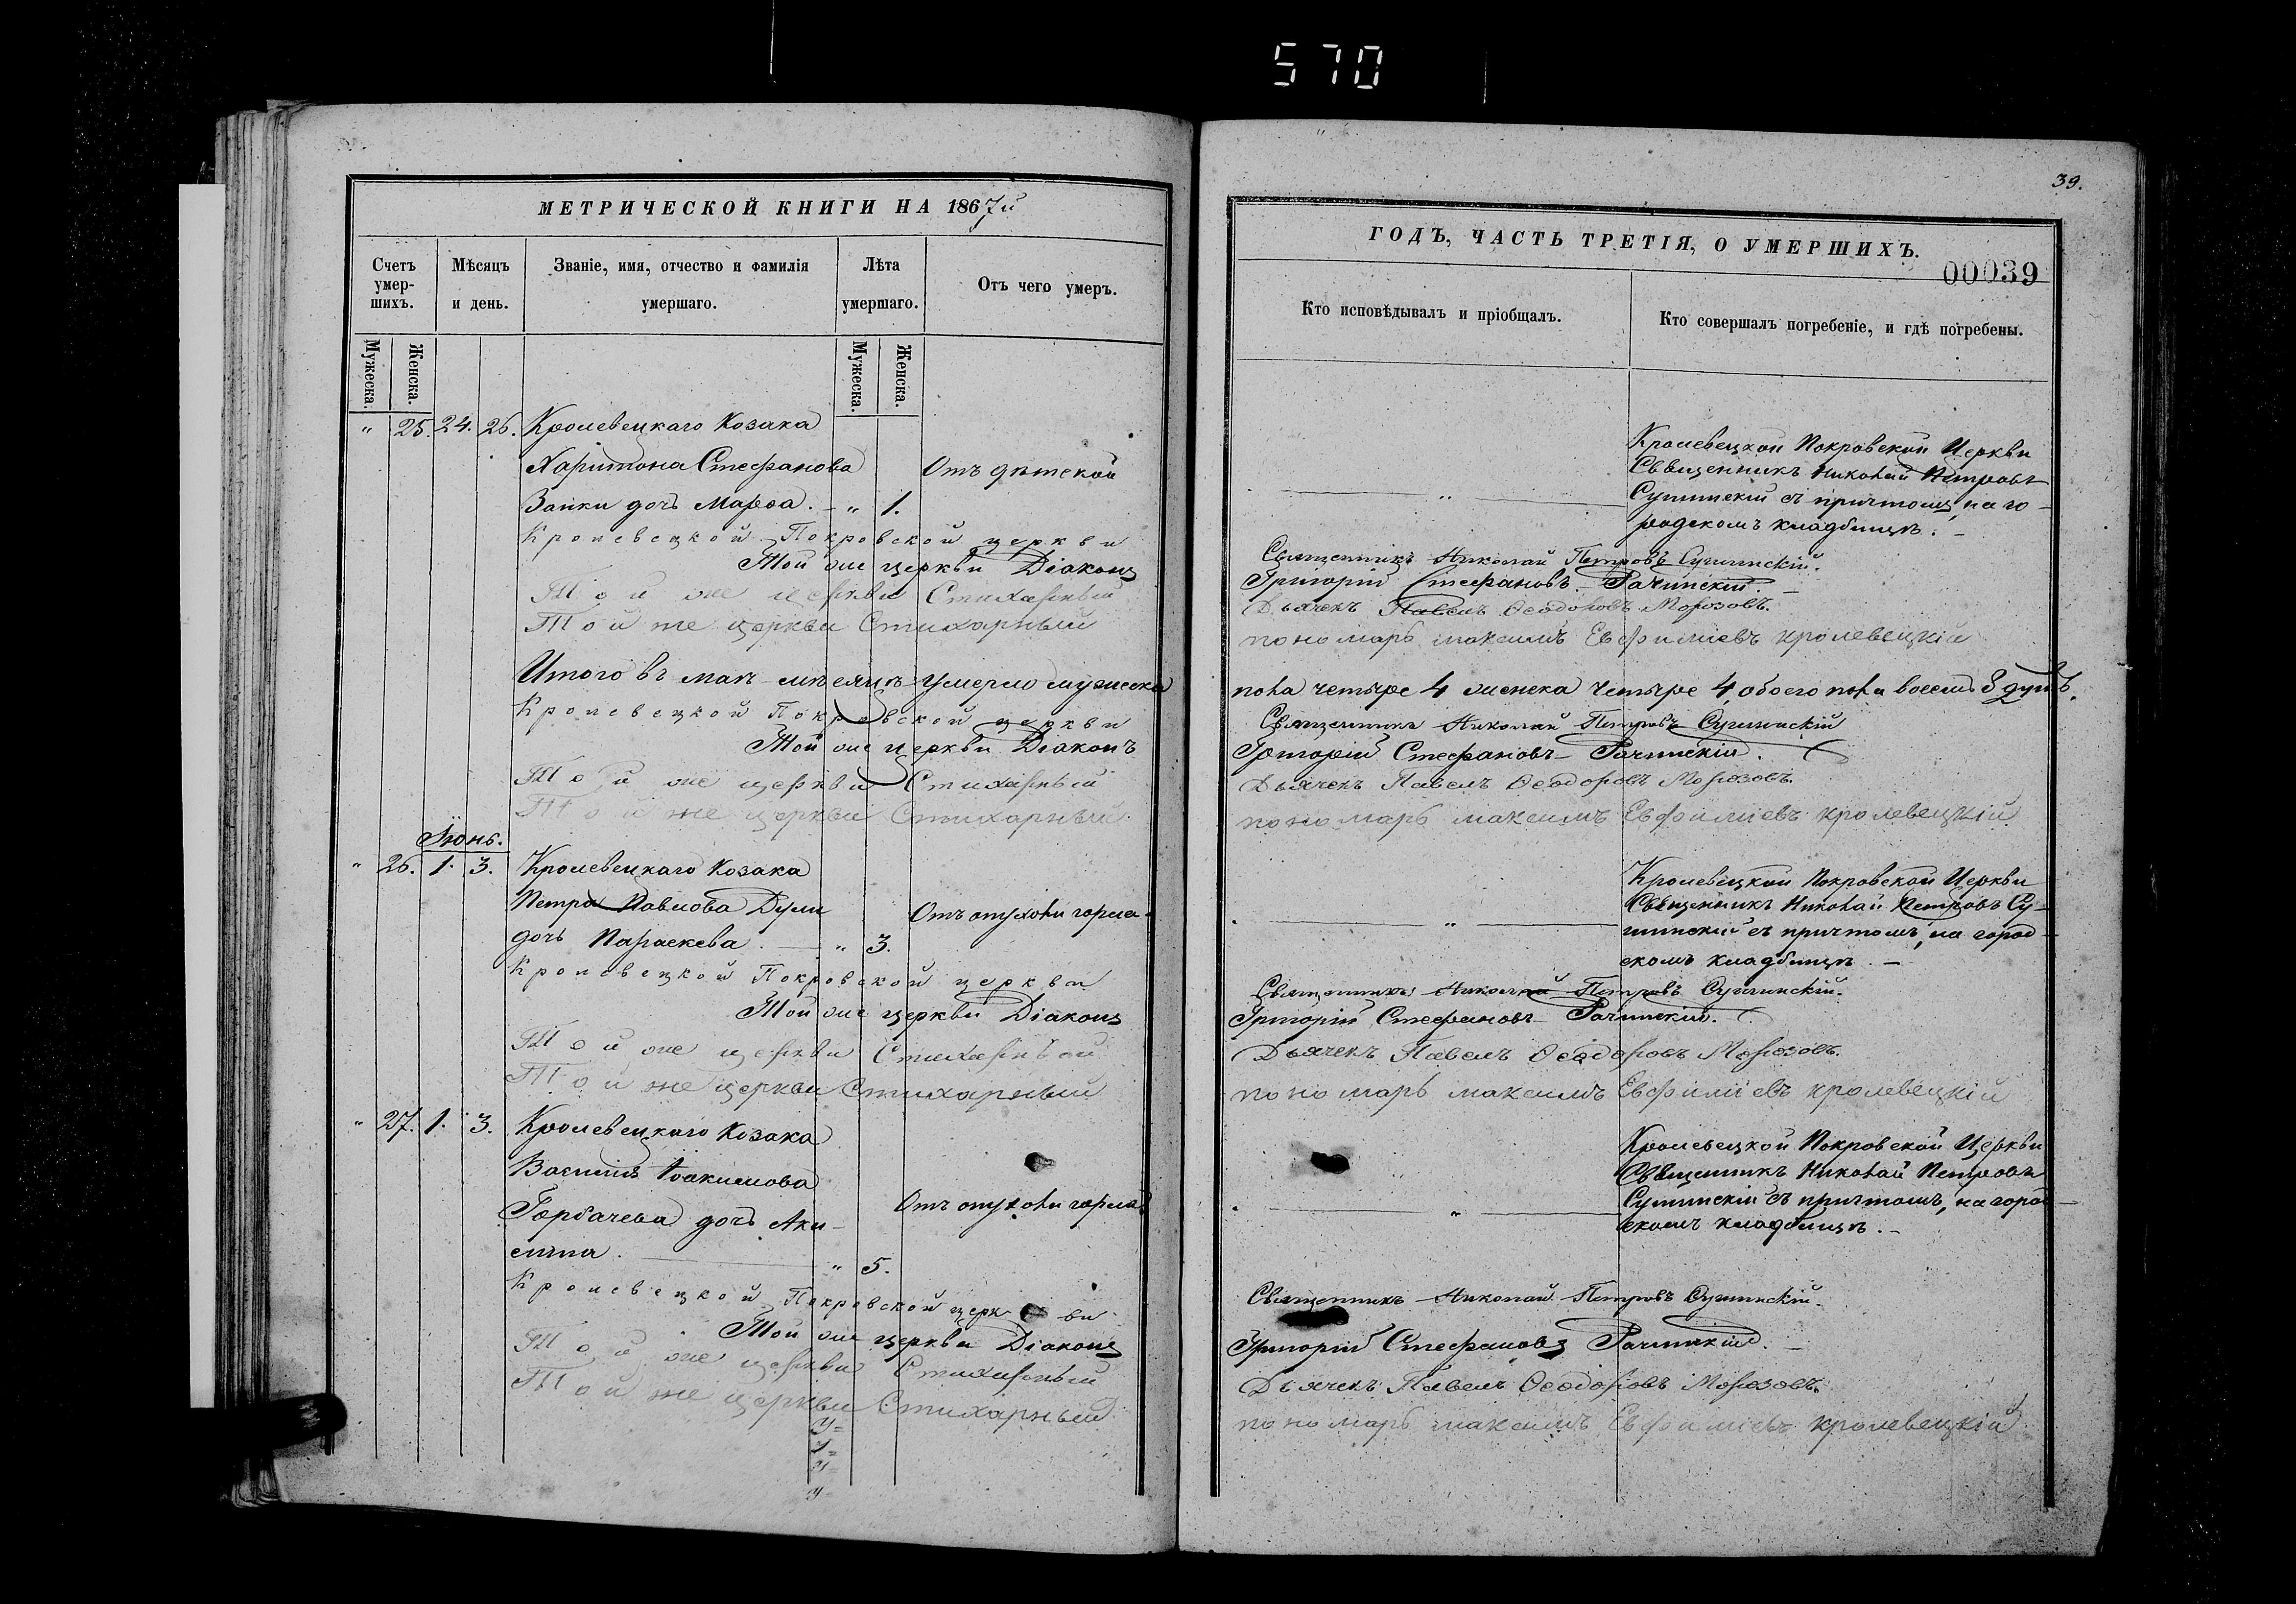 570
МЕТРИЧЕСКОЙ КНИГИ НА 1867й
Счетъ умер-шихъ.
Мѣсяцъ и день.
Званіе, имя, отчество и фамилія умершаго.
Лѣта умершаго.
Отъ чего умеръ.
Мужеска.
Женска.
Мужеска.
Женска.
" 25. 24. 26. Кролевецкаго Козака
Харитона Стефанова
Отъ дѣтской
Заики дочь Марѳа. — " 1.
Кролевецкой Покровской церкви
Той же церкви Діаконъ
Той же церкви Стихарный
Той же церкви Стихарный
Итого въ маѣ мѣсяцѣ умерло мужеска
Кролевецкой Покровской церкви
Той же церкви Діаконъ
Той же церкви Стихарный
Той же церкви Стихарный
Іюнь.
" 26. 1. 3. Кролевецкаго Козака
Петра Павлова
Отъ опухоли горла
дочь Параскева. — " 3.
Кролевецкой Покровской церкви
Той же церкви Діаконъ
Той же церкви Стихарный
Той же церкви Стихарный
" 27. 1. 3. Кролевецкаго Козака
Василія Іоакимова
Отъ опухоли горла
Горбачева дочь Аки-
лина. — " 5.
Кролевецкой Покровской церкви
Той же церкви Діаконъ
Той же церкви Стихарный
Той же церкви Стихарный
39.
ГОДЪ, ЧАСТЬ ТРЕТІЯ, О УМЕРШИХЪ.
00039
Кто исповѣдывалъ и пріобщалъ.
Кто совершалъ погребеніе, и гдѣ погребены.
Кролевецкой Покровской Церкви
Священникъ Николай Петровъ
Сушинскій съ причтомъ, на го-
родскомъ кладбищѣ. —
Священникъ Николай Петровъ Сушинскій.
Григорій Стефановъ Рачинскій. —
Дьячекъ Павелъ Ѳеодоровъ Морозовъ.
пономарь максимъ Евфиміевъ кролевецкій
пола четыре 4 женска четыре 4, обоего пола восемь 8 душъ.
Священникъ Николай Петровъ Сушинскій
Григорій Стефановъ Рачинскій.
Дьячекъ Павелъ Ѳеодоровъ Морозовъ.
пономарь максимъ Евфиміевъ кролевецкій
Кролевецкой Покровской Церкви
Священникъ Николай Петровъ Су-
шинскій съ причтомъ, на город-
скомъ кладбищѣ. —
Священникъ Николай Петровъ Сушинскій.
Григорій Стефановъ Рачинскій.
Дьячекъ Павелъ Ѳеодоровъ Морозовъ.
пономарь максимъ Евфиміевъ кролевецкій
Кролевецкой Покровской Церкви
Священникъ Николай Петровъ
Сушинскій съ причтомъ, на город-
скомъ кладбищѣ. —
Священникъ Николай Петровъ Сушинскій.
Григорій Стефановъ Рачинскій. —
Дьячекъ Павелъ Ѳеодоровъ Морозовъ.
пономарь максимъ Евфиміевъ кролевецкій